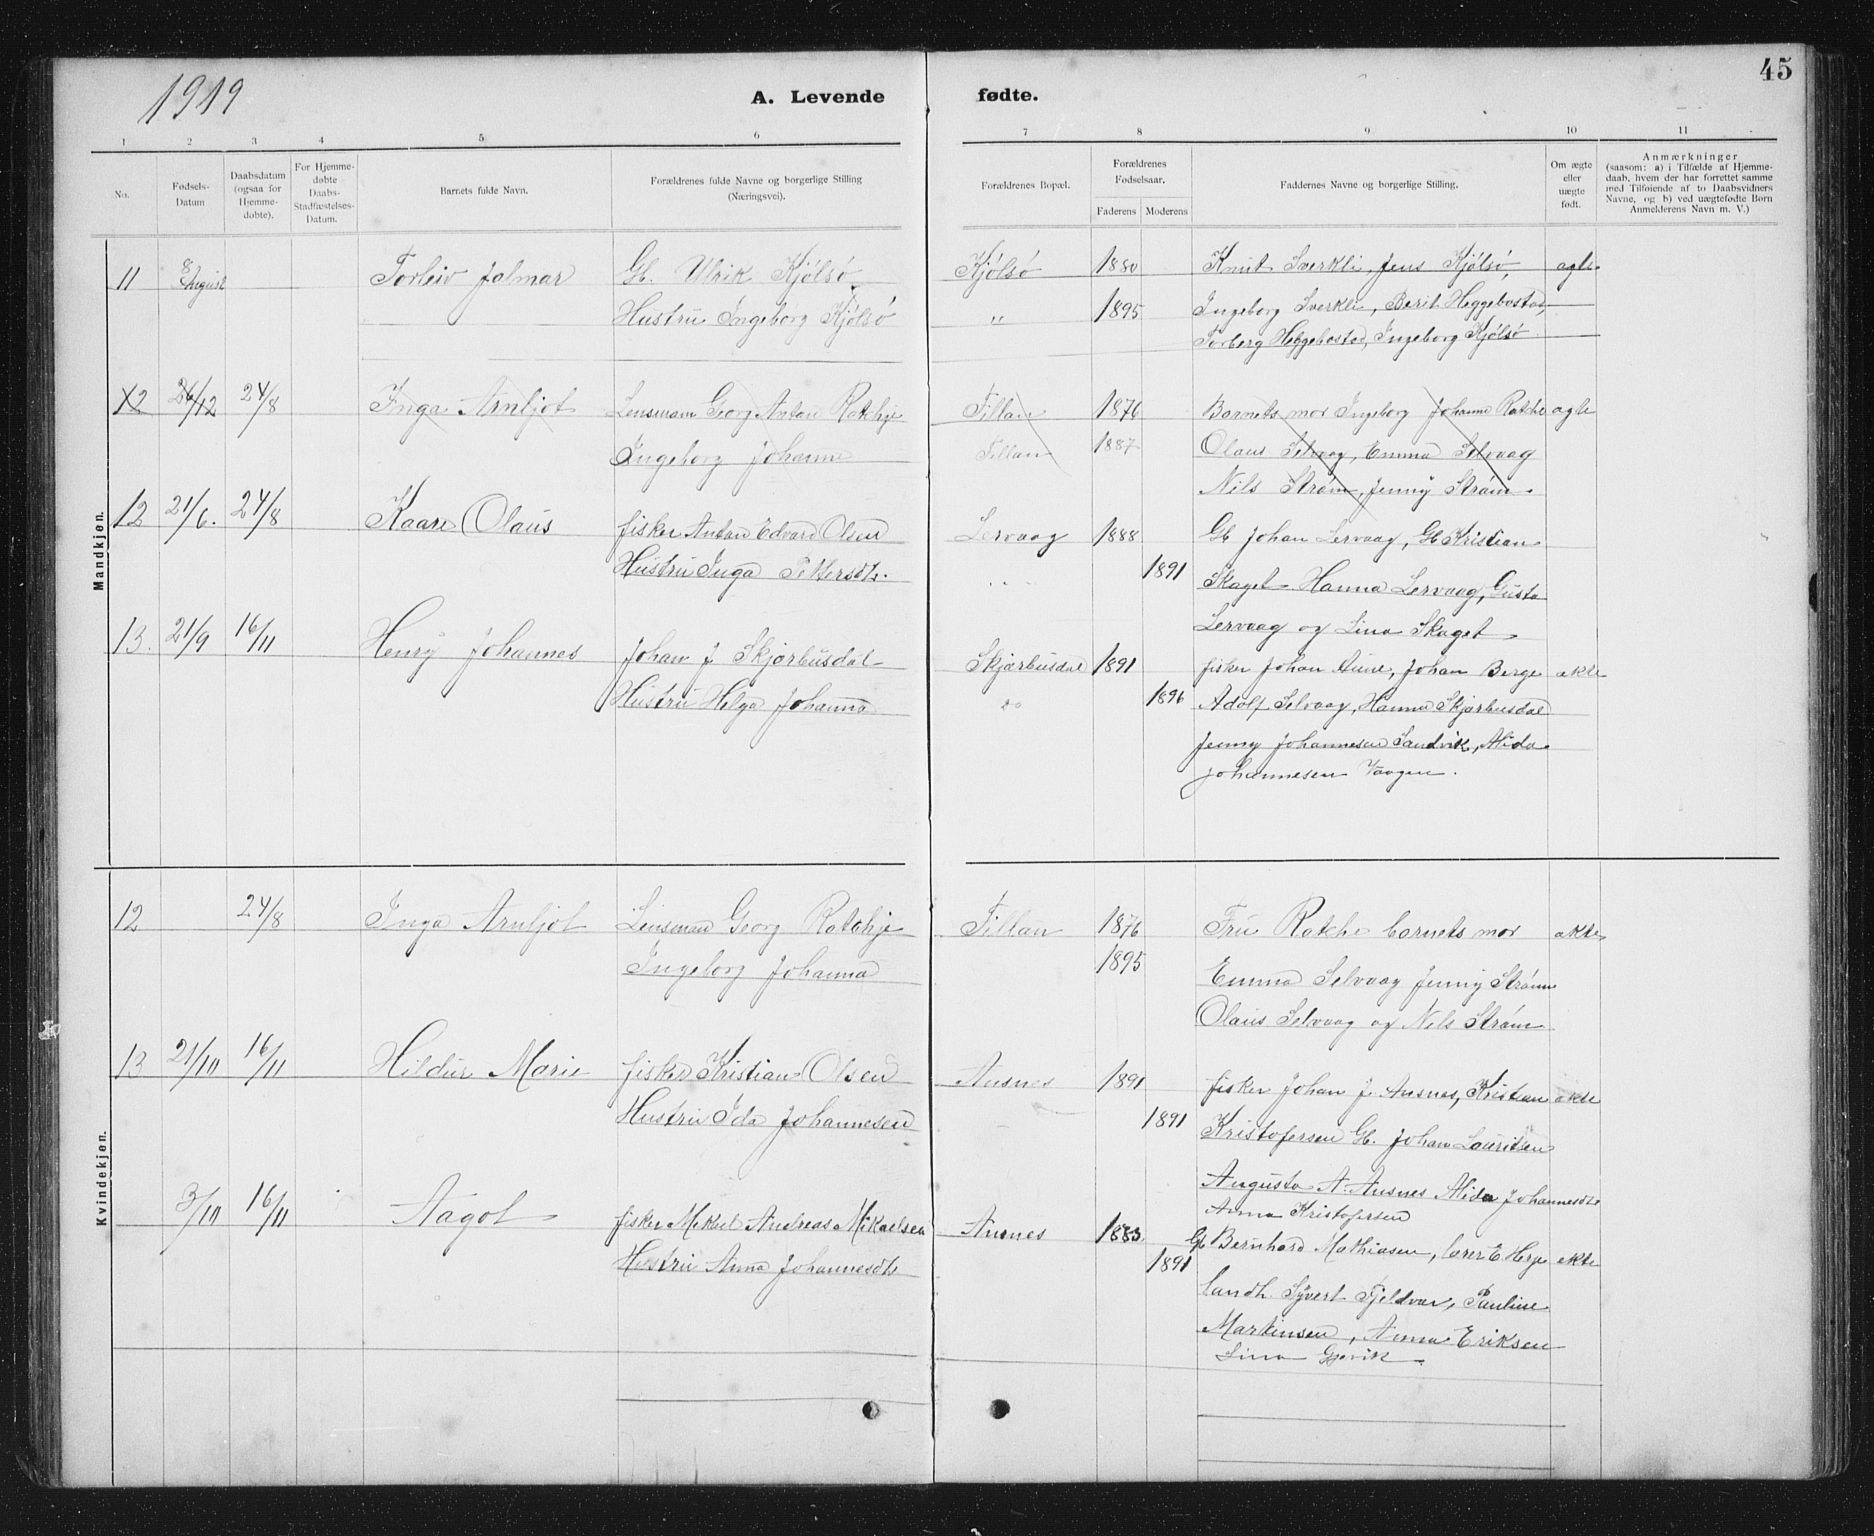 1919
45
A. Levende fødte.
1 2 3 4 5 6 7 8 9 10 11
No.
Fødsels-Datum
Daabsdatum (ogsaa for Hjemme-døbte).
For Hjemme-døbte Daabs-Stadfæstelses-Datum.
Barnets fulde Navn.
Forældrenes fulde Navne og borgerlige Stilling (Næringsvei).
Forældrenes Bopæl.
Forældrenes Fødselsaar.
Faderens Moderens
Faddernes Navne og borgerlige Stilling.
Om ægte eller uægte født.
Anmærkninger
(saasom: a) i Tilfælde af Hjemme-
daab, hvem der har forrettet samme
med Tilføiende af to Daabsvidners
Navne, og b) ved uægtefødte Børn
Anmelderens Navn m. V.)
Mandkjøn.
11 8 August Torleiv Jalmar Gb. Ulrik Kjølsø Kjølsø 1880 Knut Sverkli, Jens Kjølsø, agte
Hustru Ingeborg Kjølsø " 1895 Ingeborg Sverkli, Berit Heggebostad,
Torberg Heggebostad, Ingeborg Kjølsø
12 26/12 24/8 Inga Arnljot Lensmann Georg Anton Ratchje Fillan 1876 Barnets mor Ingeborg Johanne Ratche agte
Ingeborg Johanne Fillan 1887 Olaus Selvaag, Emma Selvaag
Nils Strøm, Jenny Strøm
12 21/6. 24/8 Kaare Olaus fisker Anton Edvard Olsen Lervaag 1888 Gb Johan Lervaag, Gb Kristian
Hustru Inga Pettersdtr. " 1891 Skaget Hanna Lervaag, Gusta
Lervaag og Lina Skaget
13. 21/9 16/11 Henry Johannes Johan J Skjærbusdal Skjærbusdal 1891 fisker Johan Aune, Johan Berge ekte
Hustru Helga Johanna do 1896 Adolf Selvaag, Hanna Skjærbusdal
Jenny Johannesen Sandvik, Alida
Johannesen Vaagen.
Kvindekjøn.
12 24/8 Inga Arnljot Lensmann Georg Ratchje Fillan 1876 Fru Ratche barnets mor ekte
Ingeborg Johanna 1895 Emma Selvaag Jenny Strøm
Olaus Selvaag og Nils Strøm
13 21/10 16/11 Hildur Marie fisker Kristian Olsen Ansnes 1891 fisker Johan J. Ansnes, Kristian ekte
Hustru Ida Johannesen 1891 Kristofersen Gb. Johan Lauritsen
Augusta A. Ansnes Alida Johannesdtr
Anna Kristofersen
3/10 16/11 Aagot fisker Mikael Andreas Mikaelsen Ansnes 1883 Gb Bernhard Mathiasen, lærer E Herje ekte
Hustru Anna Johannesdtr 1891 landh. Syvert Fjeldvær, Pauline
Martinsen, Anna Eriksen
Lina Gjevik